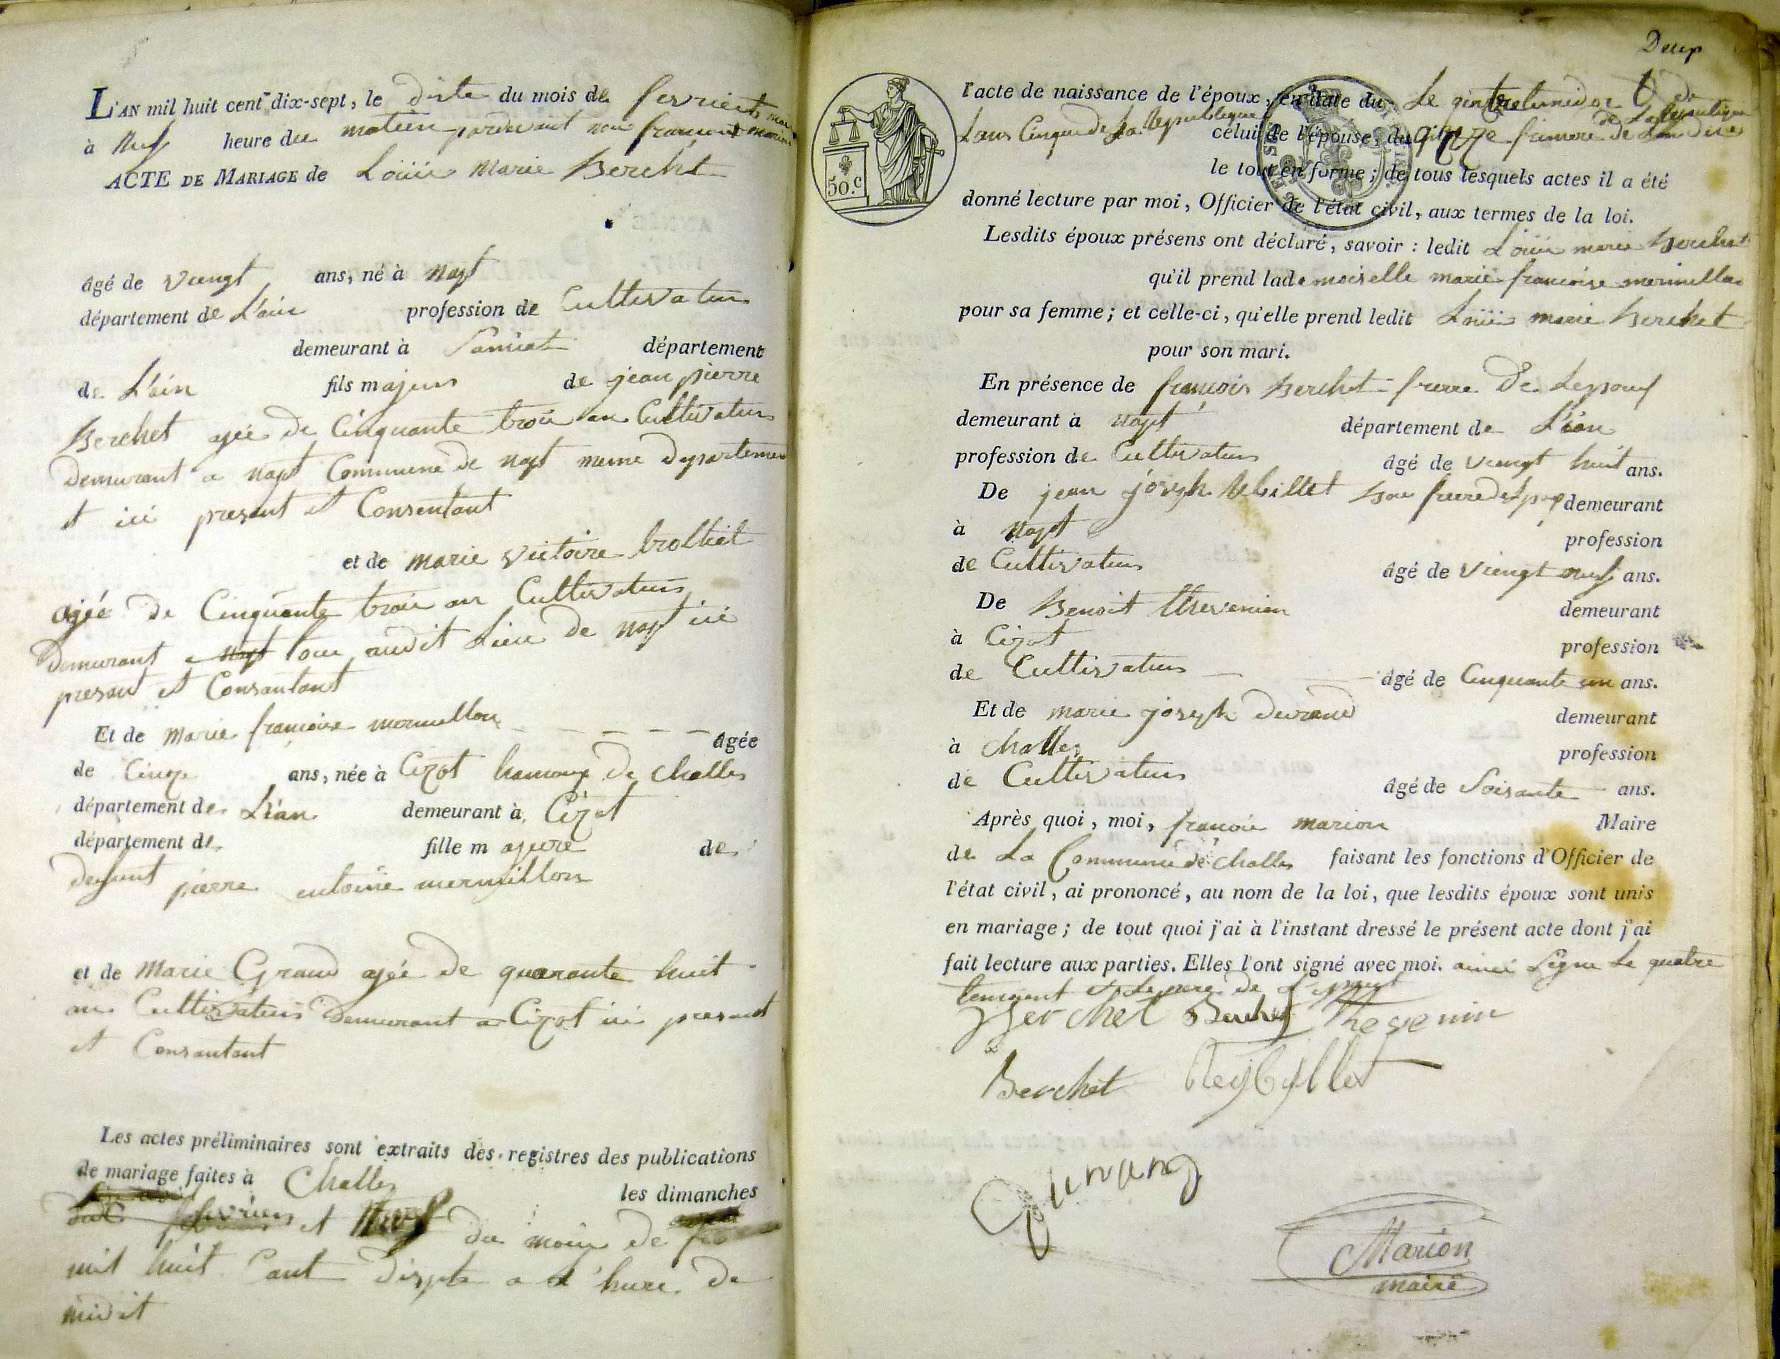 L'AN mil huit cent dix-sept, le du mois de fevrier
à neuf heure du matein pardevant nou francoi marion
ACTE DE MARIAGE de Loüis Marie Berchet
âgé de viengt ans, né à napt
département de L'ain profession de Cultivateur
demeurant à Samiat département
de L'ain fils majeur de jean pierre
Berchet agée de Cinquante troie an Cultivateur
demeurant a napt Commune de napt meme departement
et ici present et Consentant
et de marie victoire brolliet
agée de Cinquante troie an Cultivateur
demeurant a napt tou audit Lieu de napt ici
presant et Consantant
Et de Marie francoise mermillon âgée
de ans, née à Cizot hamaux de Challes
département de L'ian demeurant à Cizot
département de fille majeure de
defunt pierre entoine mermillon
et de Marie Grand agée de quarante huit
an Cultivateur demeurant a Cizot ici present
et Consantant
Les actes préliminaires sont extraits des registres des publications
de mariage faites à Challes les dimanches
fevrier et du mois de
mil huit Cant disept a l'hure de
midit
Deup
l'acte de naissance de l'époux, en date du Le
Lans Cinque de La Republique celui de l'épouse, du frimere de Lan
50.c
le tout en forme; de tous lesquels actes il a été
donné lecture par moi, Officier de l'état civil, aux termes de la loi.
Lesdits époux présens ont déclaré, savoir : ledit Loüis marie Berchet
qu'il prend lademoiselle marie francoise mermillon
pour sa femme; et celle-ci, qu'elle prend ledit Loüis marie Berchet
pour son mari.
En présence de francois Berchet frere De Lepouf
demeurant à napt département de L'ian
profession de Cultivateur âgé de viengt huit ans.
De jean joseph Rebillet demeurant
à napt profession
de Cultivateur âgé de viengt neuf ans.
De Benoit thevenien demeurant
à Cizot profession
de Cultivateur âgé de Cinquante un ans.
Et de marie joseph durand demeurant
à Challes profession
de Cultivateur âgé de Soisante ans.
Après quoi, moi, francoie marion Maire
de La Commune de Challes faisant les fonctions d'Officier de
l'état civil, ai prononcé, au nom de la loi, que lesdits époux sont unis
en mariage; de tout quoi j'ai à l'instant dressé le présent acte dont j'ai
fait lecture aux parties. Elles l'ont signé avec moi. ainci Signe Le quatre
temoient et Le pere de
Berchet Berchet Thevenin
Berchet Reybillet
Durand
Marion
maire